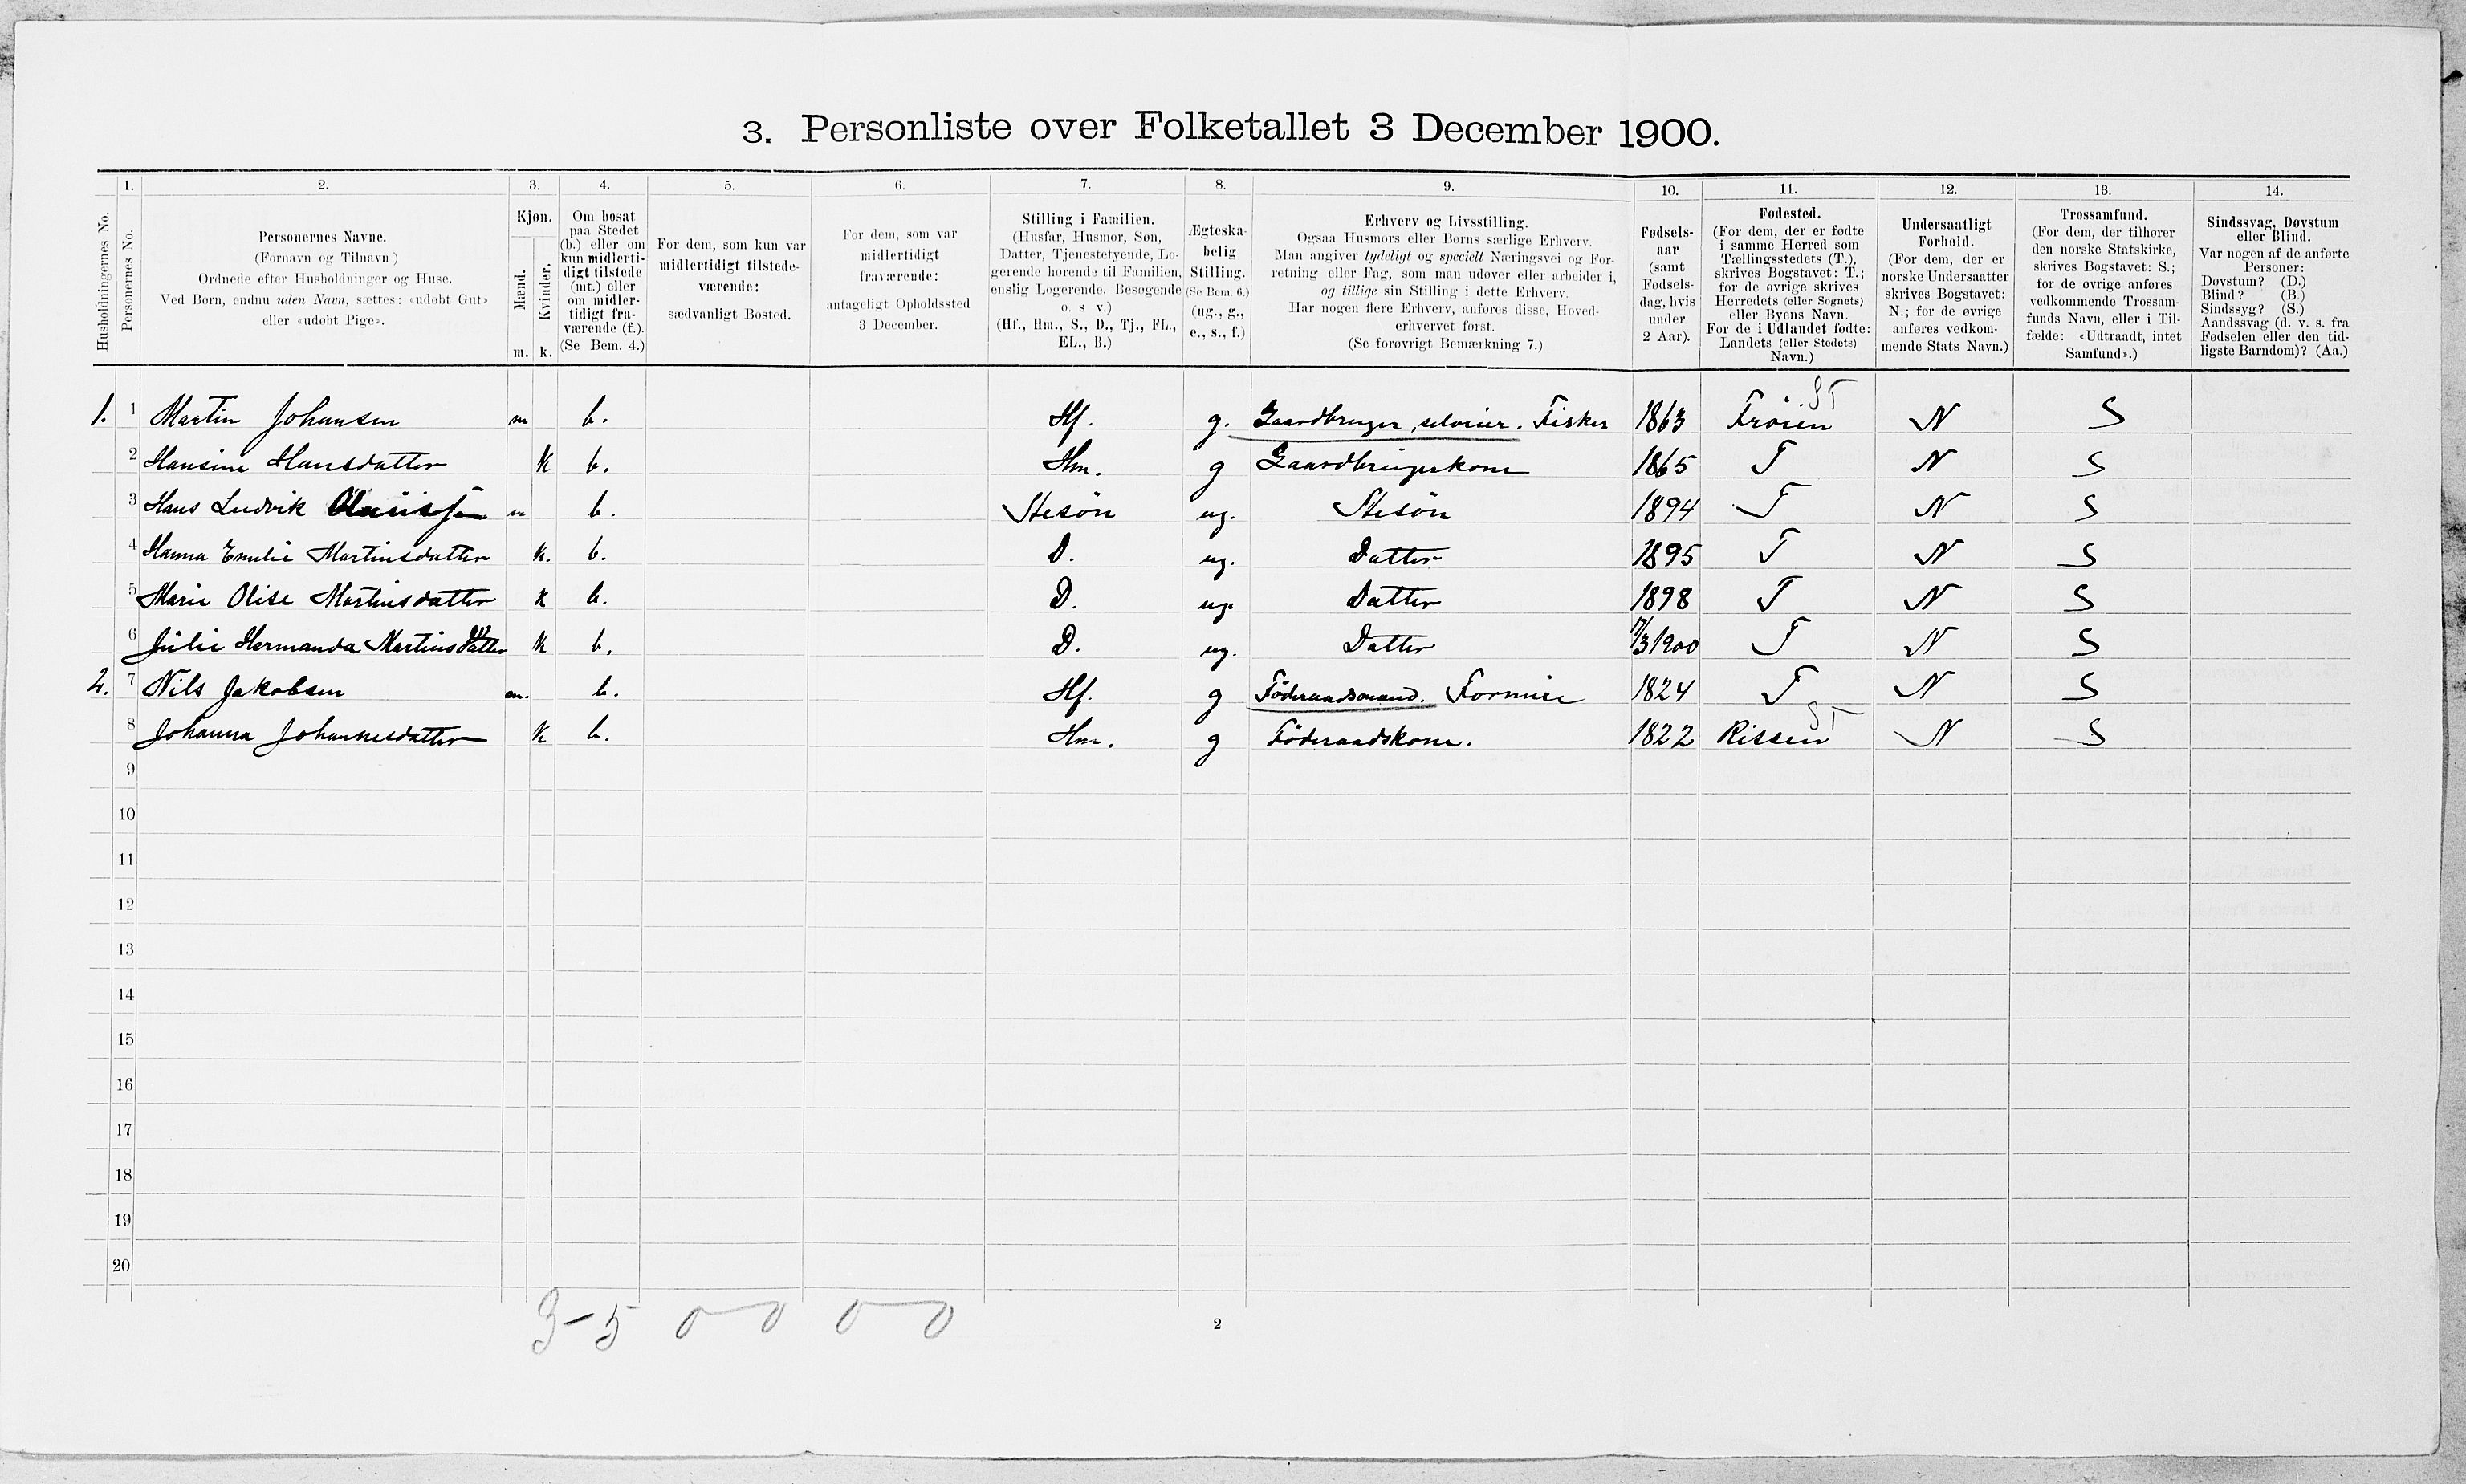 3. Personliste over Folketallet 3 December 1900.
1. 2. 3. 4. 5. 6. 7. 8. 9. 10. 11. 12. 13. 14.
Husholdningernes No.
Personernes No.
Personernes Navne.
(Fornavn og Tilnavn)
Ordnede efter Husholdninger og Huse.
Ved Børn, endnu uden Navn, sættes: «udøbt Gut»
eller «udøbt Pige».
Kjøn.
Mænd.
Kvinder.
m. k.
Om bosat
paa Stedet
(b.) eller om
kun midlerti-
digt tilstede
(mt.) eller
om midler-
tidigt fra-
værende (f.).
(Se Bem. 4.)
For dem, som kun var
midlertidigt tilstede-
værende:
sædvanligt Bosted.
For dem, som var
midlertidigt
fraværende:
antageligt Opholdssted
3 December.
Stilling i Familien.
(Husfar, Husmor, Søn,
Datter, Tjenestetyende, Lo-
gerende hørende til Familien,
enslig Logerende, Besøgende
o. s v.)
(Hf., Hm., S., D., Tj., FL.,
EL., B.)
Ægteska-
belig
Stilling.
(Se Bem. 6.)
(ug., g.,
e., s., f.)
Erhverv og Livsstilling.
Ogsaa Husmors eller Børns særlige Erhverv.
Man angiver tydeligt og specielt Næringsvei og For-
retning eller Fag, som man udøver eller arbeider i,
og tillige sin Stilling i dette Erhverv.
Har nogen flere Erhverv, anføres disse, Hoved-
erhvervet først.
(Se forøvrigt Bemærkning 7.)
Fødsels-
aar
(samt
Fødsels-
dag, hvis
under
2 Aar).
Fødested.
(For dem, der er fødte
i samme Herred som
Tællingsstedets (T.),
skrives Bogstavet: T.;
for de øvrige skrives
Herredets (eller Sognets)
eller Byens Navn.
For de i Udlandet fødte:
Landets (eller Stedets)
Navn.)
Undersaatligt
Forhold.
(For dem, der er
norske Undersaatter
skrives Bogstavet:
N.; for de øvrige
anføres vedkom-
mende Stats Navn.)
Trossamfund.
(For dem, der tilhører
den norske Statskirke,
skrives Bogstavet: S.;
for de øvrige anføres
vedkommende Trossam-
funds Navn, eller i Til-
fælde: «Udtraadt, intet
Samfund».)
Sindssvag, Døvstum
eller Blind.
Var nogen af de anførte
Personer:
Døvstum? (D.)
Blind? (B.)
Sindssyg? (S.)
Aandssvag (d. v. s. fra
Fødselen eller den tid-
ligste Barndom)? (Aa.)
1. 1 Martin Johansen m b. Hf. g. Gaardbruger, selveier. Fisker 1863 Frøien ST N S
2 Hansine Hansdatter k b. Hm. g Gaardbrugerkone 1865 T N S
3 Hans Ludvik m b. Stesøn ug. Stesøn 1894 T N S
4 Hanna Emelie Martinsdatter k. b. D. ug. Datter 1895 T N S
5 Marie Olise Martinsdatter k b. D. ug. Datter 1898 T N S
6 Julie Hermanda Martinsdatter k b. D. ug. Datter 1900 T N S
2. 7 Nils Jakobsen m. b. Hf. g Föderaadsmand. Formue 1824 T N S
8 Johanna Johannesdatter k b. Hm. g Föderaadskone. 1822 Rissen ST N S
9
10
11
12
13
14
15
16
17
18
19
20
3-5 0 0 0 0
2